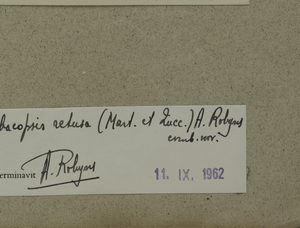 bacopsis retusa (Mart. et Zucc.) A. Robyns
comb. nov.
erminavit A. Robyns 11. IX. 1962